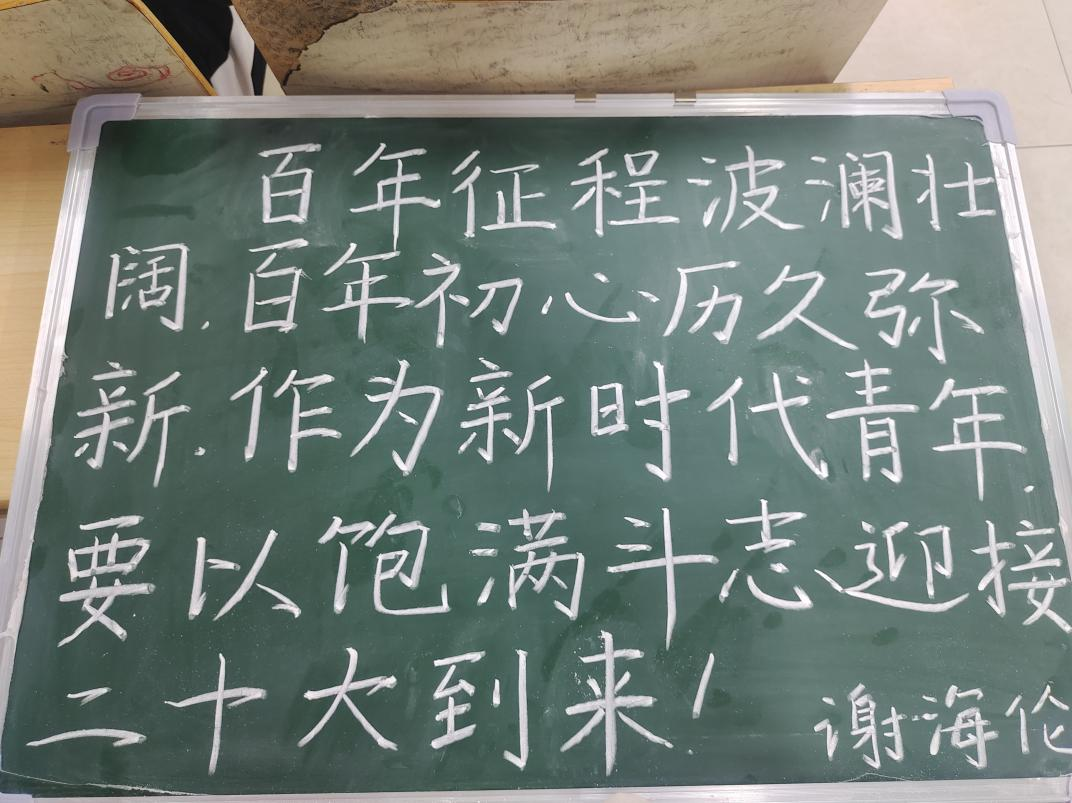 百年征程波澜壮
阔.百年初心历久弥
新.作为新时代青年.
要以饱满斗志迎接
二十大到来!
谢海伦